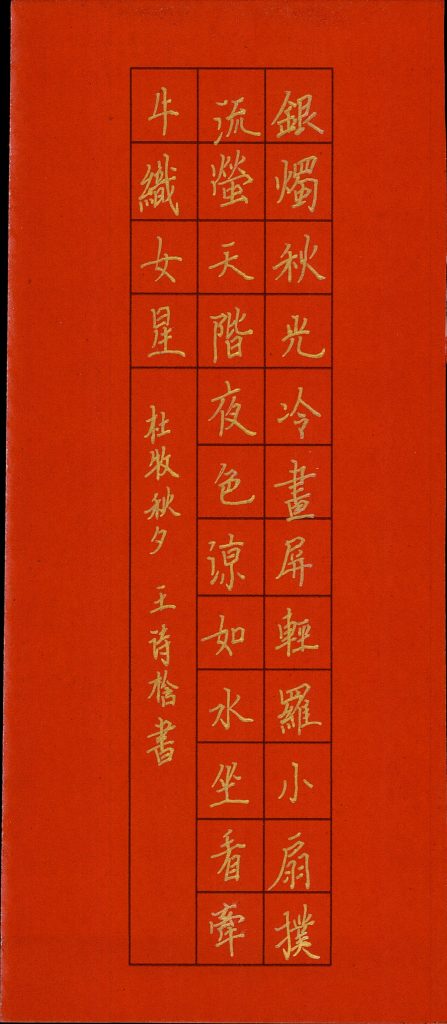 銀燭秋光冷畫屏輕羅小扇撲
流螢天階夜色涼如水坐看牽
牛織女星
杜牧秋夕 王诗楦書